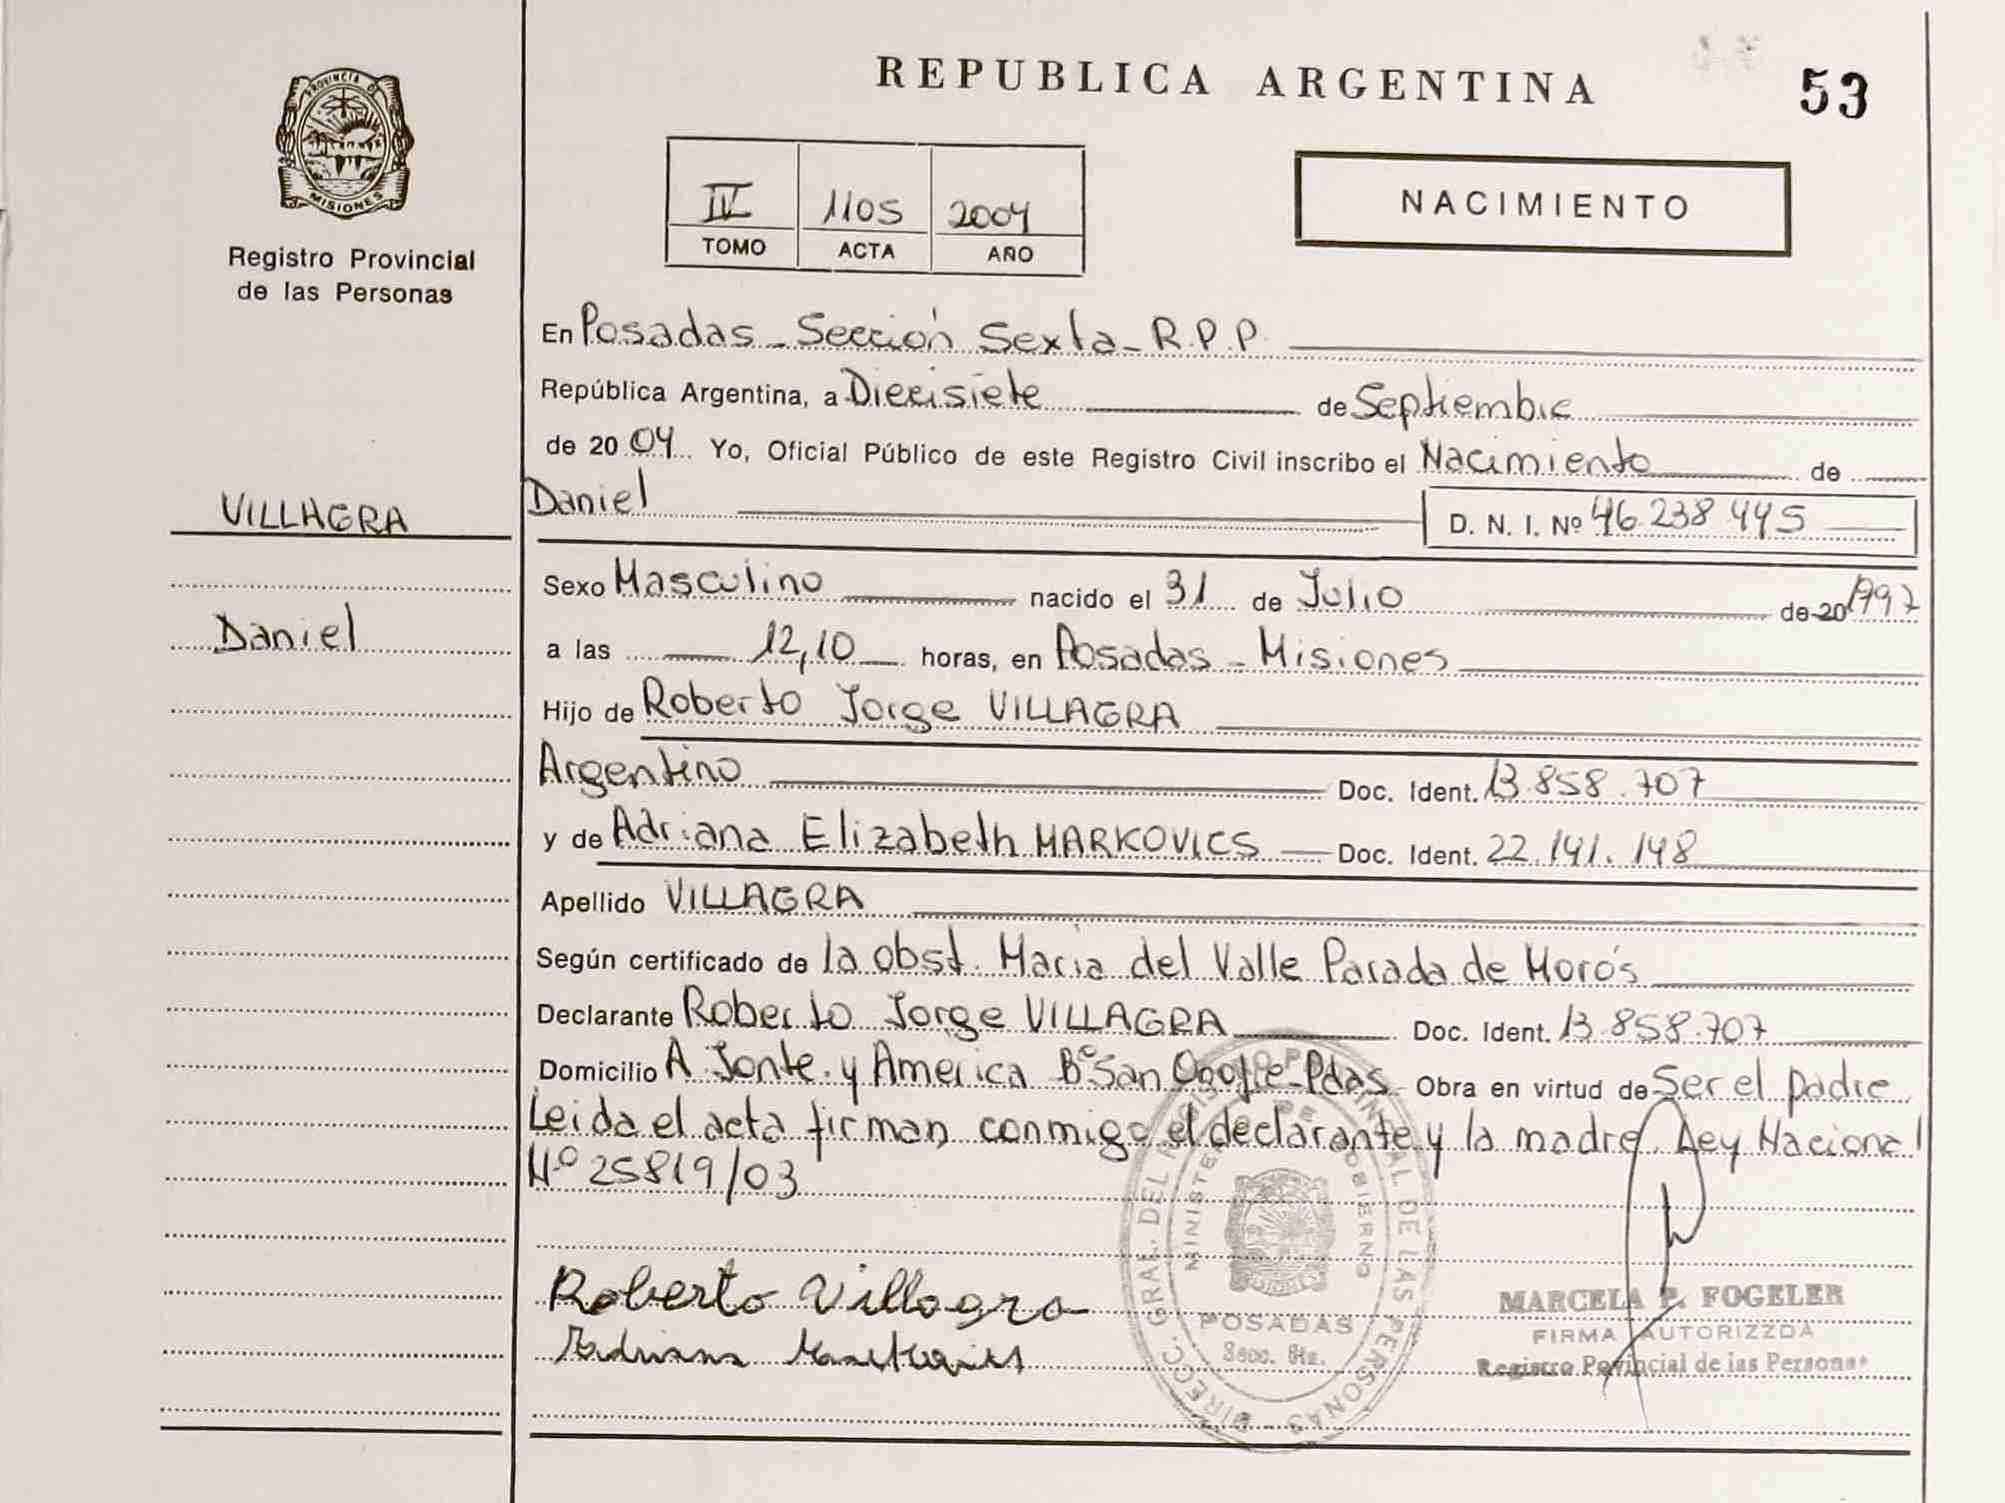 REPUBLICA ARGENTINA
53
PROVINCIA DE
MISIONES
Registro Provincial
de las Personas
IV 1105 2004
TOMO ACTA AÑO
NACIMIENTO
En Posadas - Sección Sexta - R.P.P.
República Argentina, a Diecisiete de Septiembre
de 2004 Yo, Oficial Público de este Registro Civil inscribo el Nacimiento de
VILLAGRA
Daniel D. N. I. Nº 46.238.445
Sexo Masculino nacido el 31 de Julio de 20 1997
Daniel
a las 12,10 horas, en Posadas - Misiones
Hijo de Roberto Jorge VILLAGRA
Argentino Doc. Ident. 13.858.707
y de Adriana Elizabeth MARKOVICS Doc. Ident. 22.141.148
Apellido VILLAGRA
Según certificado de la obst. Maria del Valle Parada de Morós
Declarante Roberto Jorge VILLAGRA Doc. Ident. 13.858.707
Domicilio A. Jonte y America Bº San Onofre - Pdas. Obra en virtud de Ser el padre
Leida el acta firman conmigo el declarante y la madre. Ley Nacional
Nº 25819/03
Roberto Villagra
Adriana Markovics
DIREC. GRAL. DEL REGISTRO PROVINCIAL DE LAS PERSONAS
MINISTERIO DE GOBIERNO
POSADAS
Secc. 6ta.
MARCELA P. FOGELER
FIRMA AUTORIZZDA
Registro Povincial de las Personas